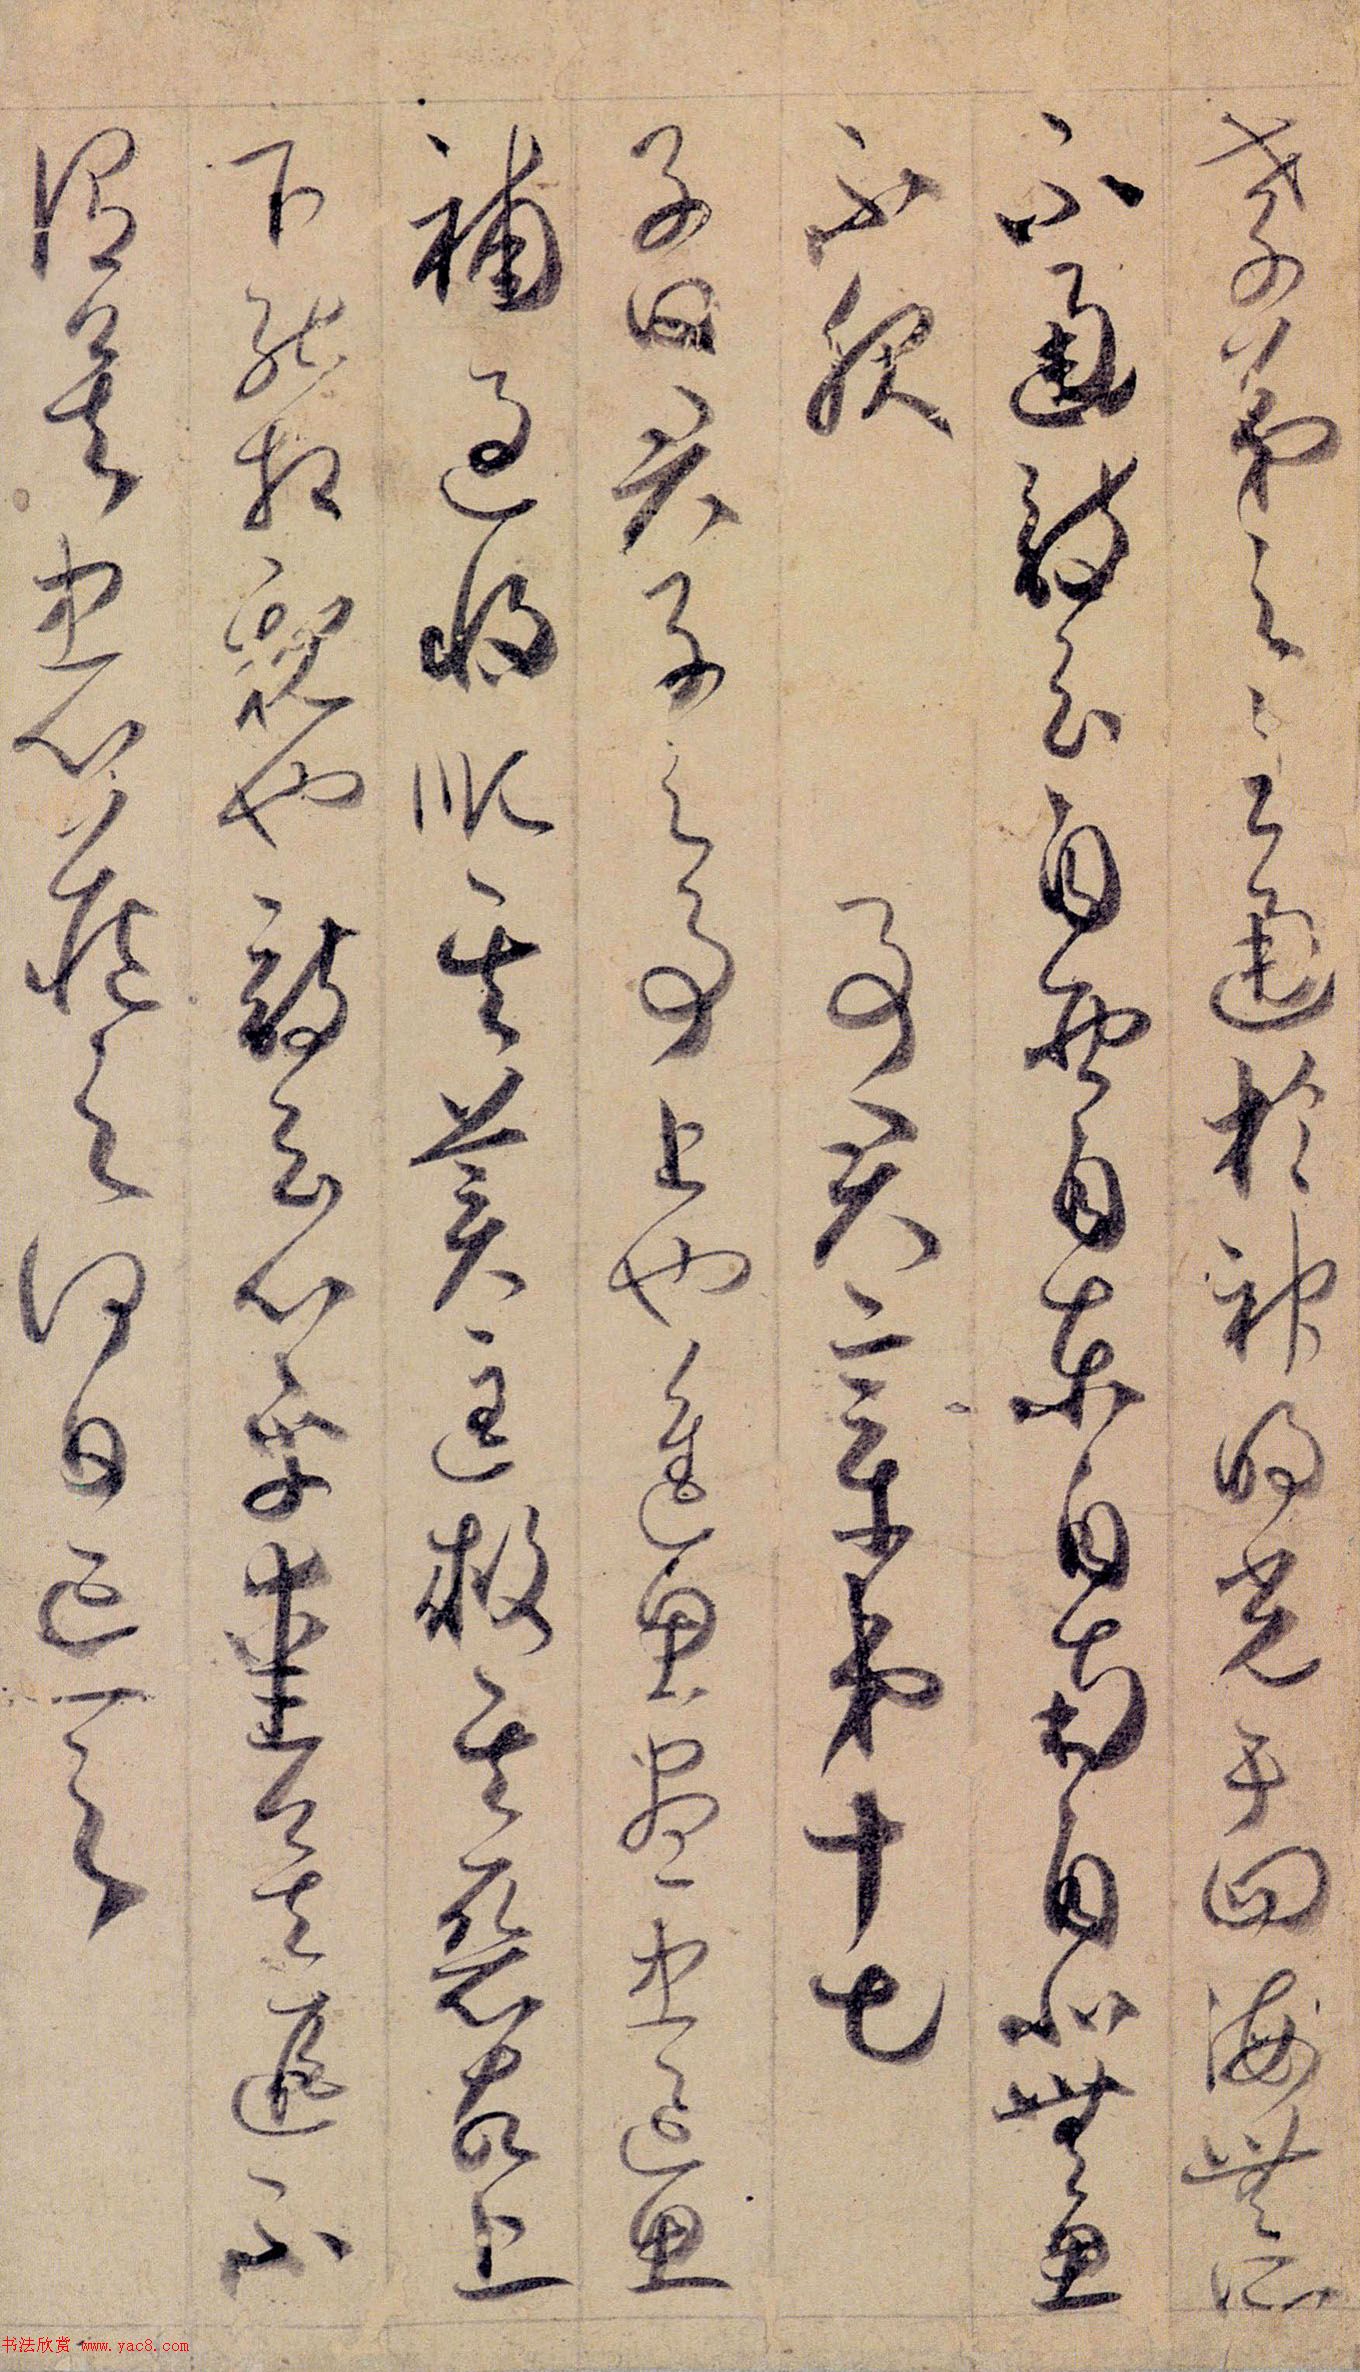 孝弟之至通於神明光于四海無所
不通詩云自西自東自南自北無思
不服　事君章第十七
子曰君子之事上也進思盡忠退思
補過將順其美匡救其惡故上
下能相親也詩云心乎愛矣遐不
謂矣忠心藏之何日忘之
书法欣赏 www.yac8.com